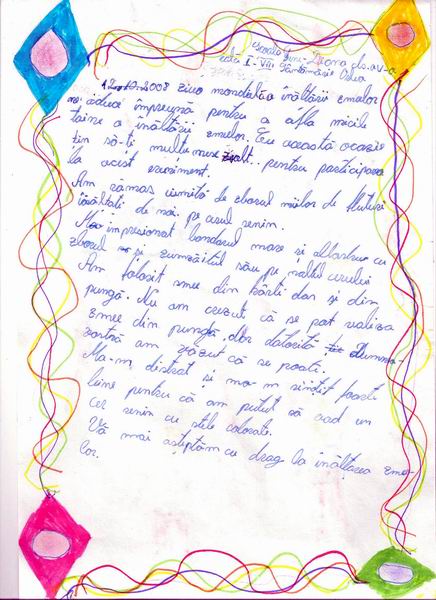 Școala
cls. a V-a
I - VIII Sântămăria Orlea
12.10.2008 ziua mondială a înălțării zmeelor
ne aduce împreună pentru a afla micile
taine a înălțării zmeelor. Eu această ocazie
țin să-ți mulțumesc pentru participarea
la acest eveniment.
Am rămas uimită de zborul miilor de fluturi
înălțati de noi pe cerul senin.
M-a impresionat bondarul mare și albastru cu
zborul și zumzăitul său pe naltul cerului
Am folosit zmee din hârti dar și din
pungă. Nu am crezut că se pot realiza
zmee din pungă, dar datorită
voastră am văzut că se poate.
M-am distrat și m-am simțit foarte
bine pentru că am putut să văd un
cer senin cu stele colorate.
Vă mai așteptăm cu drag la înălțarea zmee-
lor.